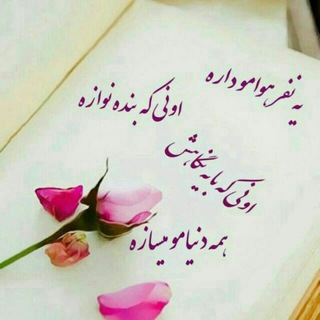 یه نفر هوامو داره
اونی که بنده نوازه
اونی که با یه نگاهش
همه دنیامو میسازه